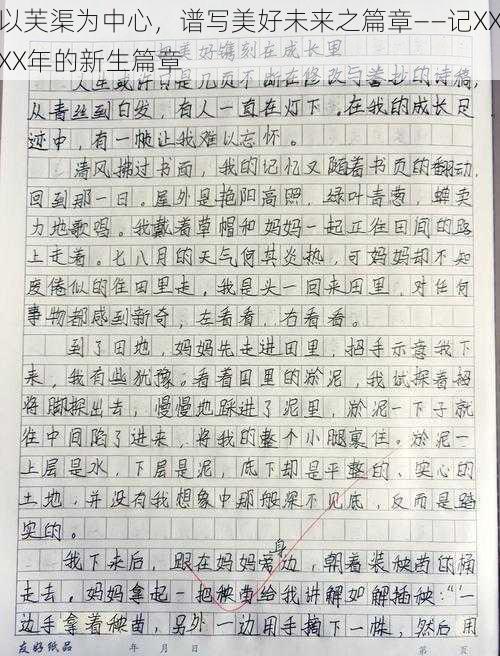 以芙渠为中心，谱写美好未来之篇章——记XX
XX年的新生篇章
美好镌刻在成长里
人生或许只是几页不断在修改与誊抄的诗稿，
从青丝到白发，有人一直在灯下。在我的成长足
迹中，有一帧让我难以忘怀。
清风拂过书面，我的记忆又随着书页的翻动，
回到那一日。屋外是艳阳高照，绿叶青葱，蝉卖
力地歌唱。我戴着草帽和妈妈一起正往田间的路
上走着。七八月的天气何其炎热，可妈妈却不知
疲倦似的往田里走。我是头一回来田里，对任何
事物都感到新奇，左看看，右看看。
到了田地，妈妈先走进田里，招手示意我下
来，我有些犹豫。看着田里的淤泥，我试探着
将脚探出去，慢慢地踩进了泥里，淤泥一下子就
往中间陷了进来，将我的整个小腿裹住。淤泥一
上层是水，下层是泥，底下却是平整的、实心的
土地，并没有我想象中那般深不见底，反而是踏
实的。
我下来后，跟在妈妈旁边，朝着装秧苗的桶
身
走去。妈妈拿起一把秧苗给我讲解如解插秧："一
边手拿着秧苗，另外一边用手摘下一株，然后用
友好纸品 年 月 日 第 页